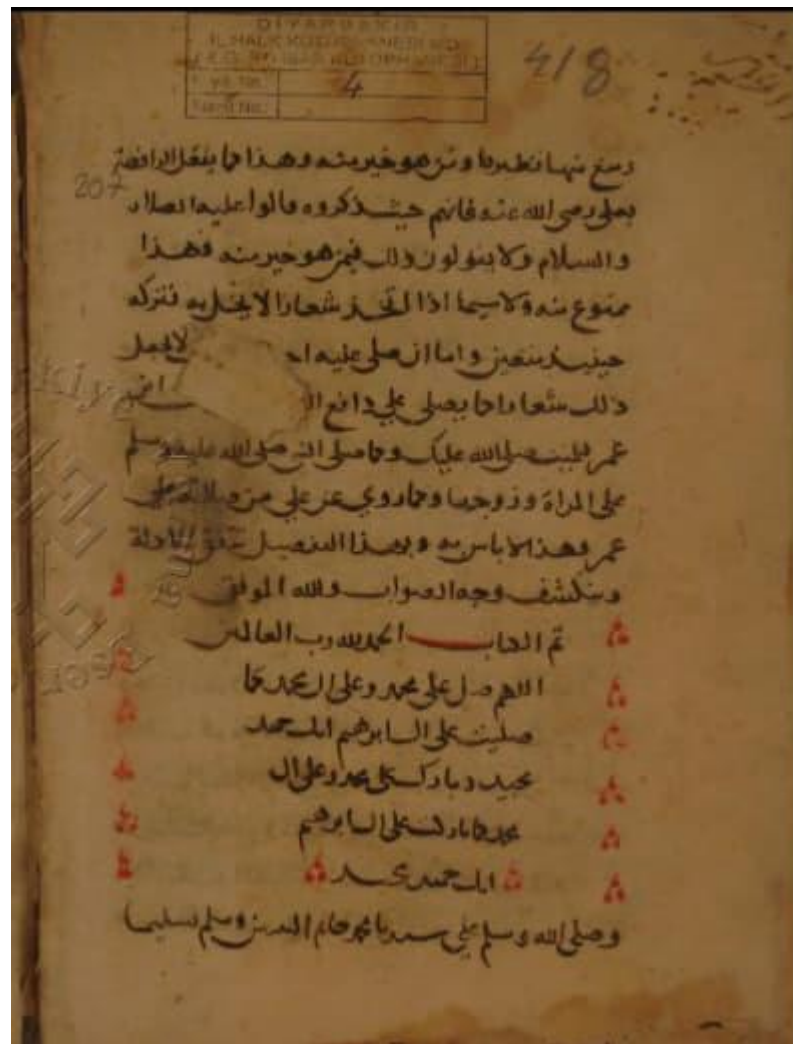 DİYARBAKIR
İL HALK KÜTÜPHANESİ
4
418
207
دمنع منها نظيره او من هو خير منه وهذا كما يفعل الرافضة
بعلي رضي الله عنه فانهم حيث ذكروه قالوا عليه الصلاة
والسلام ولا يقولون ذلك فيمن هو خير منه فهذا
ممنوع منه ولا سيما اذا اتخذ شعارا لا يخل به فتركه
حينيذ متعين واما ان صلى عليه لا يجعل
ذلك شعارا كما يصلى على دافع
عمر للميت صلى الله عليك وكما صلى النبي صلى الله عليه وسلم
على المراة وزوجها وكما روي عن علي من صلاته على
عمر فهذا لا باس به وبهذا التفصيل تتفق الادلة
وينكشف وجه الصواب والله الموفق
تم الكتاب الحمد لله رب العالمين
اللهم صل على محمد وعلى ال محمد كما
صليت على ال ابرهيم انك حميد
مجيد وبارك على محمد وعلى ال
محمد كما باركت على ال ابرهيم
انك حميد مجيد
وصلى الله وسلم على سيدنا محمد خاتم النبيين وسلم تسليما